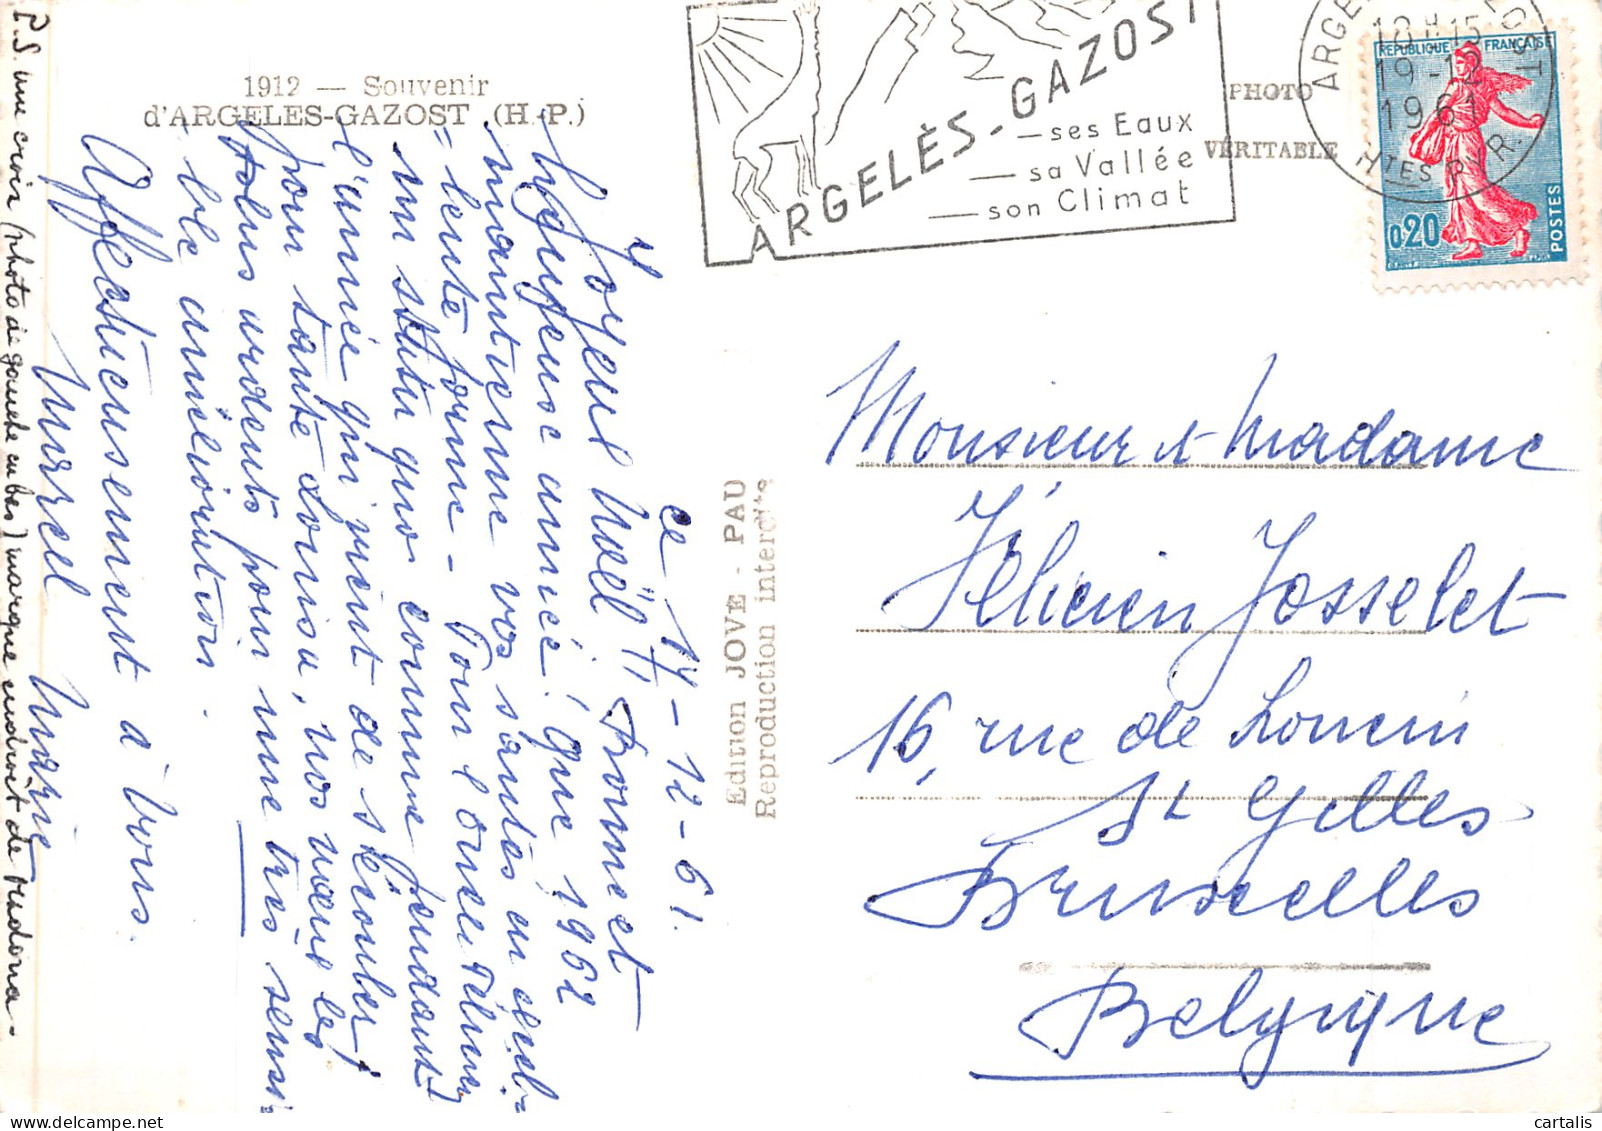 1912 — Souvenir
d'ARGELES-GAZOST (H.-P.)
ce 17-12-61.
Joyeux Noël !! Bonne et
heureuse année ! Que 1962
maintienne vos santés en excel-
=lente forme - Pour l'oncle
un statu quo comme pendant
l'année qui vient de s'écouler !
pour tante Louisa, nos vœux les
plus ardents pour une très sensi
-ble amélioration.
Affectueusement à Vous.
Marcel Marie
P.S. une croix (photo de gauche en bas) marque endroit de
Edition JOVE - PAU
Reproduction interdite
ARGELÈS-GAZOST
— ses Eaux
— sa Vallée
— son Climat
PHOTO
VÉRITABLE
18H15
19-12
1961
HTES PYR.
REPUBLIQUE FRANÇAISE
0,20
POSTES
Monsieur et Madame
Félicien Josselet
16, rue de Loncin
St Gilles
Bruxelles
Belgique
cartalis
delcampe.net